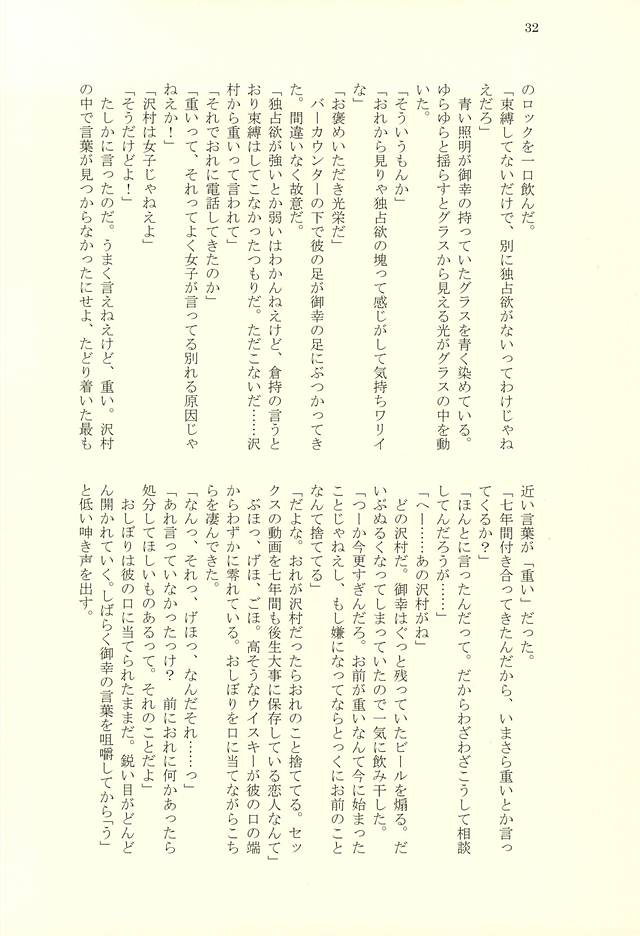 32
のロックを一口飲んだ。
「束縛してないだけで、別に独占欲がないってわけじゃね
えだろ」
青い照明が御幸の持っていたグラスを青く染めている。
ゆらゆらと揺らすとグラスから見える光がグラスの中を動
いた。
「そういうもんか」
「おれから見りゃ独占欲の塊って感じがして気持ちワリイ
な」
「お褒めいただき光栄だ」
バーカウンターの下で彼の足が御幸の足にぶつかってき
た。間違いなく故意だ。
「独占欲が強いとか弱いはわかんねえけど、倉持の言うと
おり束縛はしてこなかったつもりだ。ただこないだ……沢
村から重いって言われて」
「それでおれに電話してきたのか」
「重いって、それってよく女子が言ってる別れる原因じゃ
ねえか！」
「沢村は女子じゃねえよ」
「そうだけどよ！」
たしかに言ったのだ。うまく言えねえけど、重い。沢村
の中で言葉が見つからなかったにせよ、たどり着いた最も
近い言葉が「重い」だった。
「七年間付き合ってきたんだから、いまさら重いとか言っ
てくるか？」
「ほんとに言ったんだって。だからわざわざこうして相談
してんだろうが……」
「へー……あの沢村がね」
どの沢村だ。御幸はぐっと残っていたビールを煽る。だ
いぶぬるくなってしまっていたので一気に飲み干した。
「つーか今更すぎんだろ。お前が重いなんて今に始まった
ことじゃねえし、もし嫌になってならとっくにお前のこと
なんて捨ててる」
「だよな。おれが沢村だったらおれのこと捨ててる。セッ
クスの動画を七年間も後生大事に保存している恋人なんて」
ぶほっ、げほ、ごほ。高そうなウイスキーが彼の口の端
からわずかに零れている。おしぼりを口に当てながらこち
らを凄んできた。
「なんっ、それっ、げほっ、なんだそれ……っ」
「あれ言っていなかったっけ？　前におれに何かあったら
処分してほしいものあるって。それのことだよ」
おしぼりは彼の口に当てられたままだ。鋭い目がどんど
ん開かれていく。しばらく御幸の言葉を咀嚼してから「う」
と低い呻き声を出す。